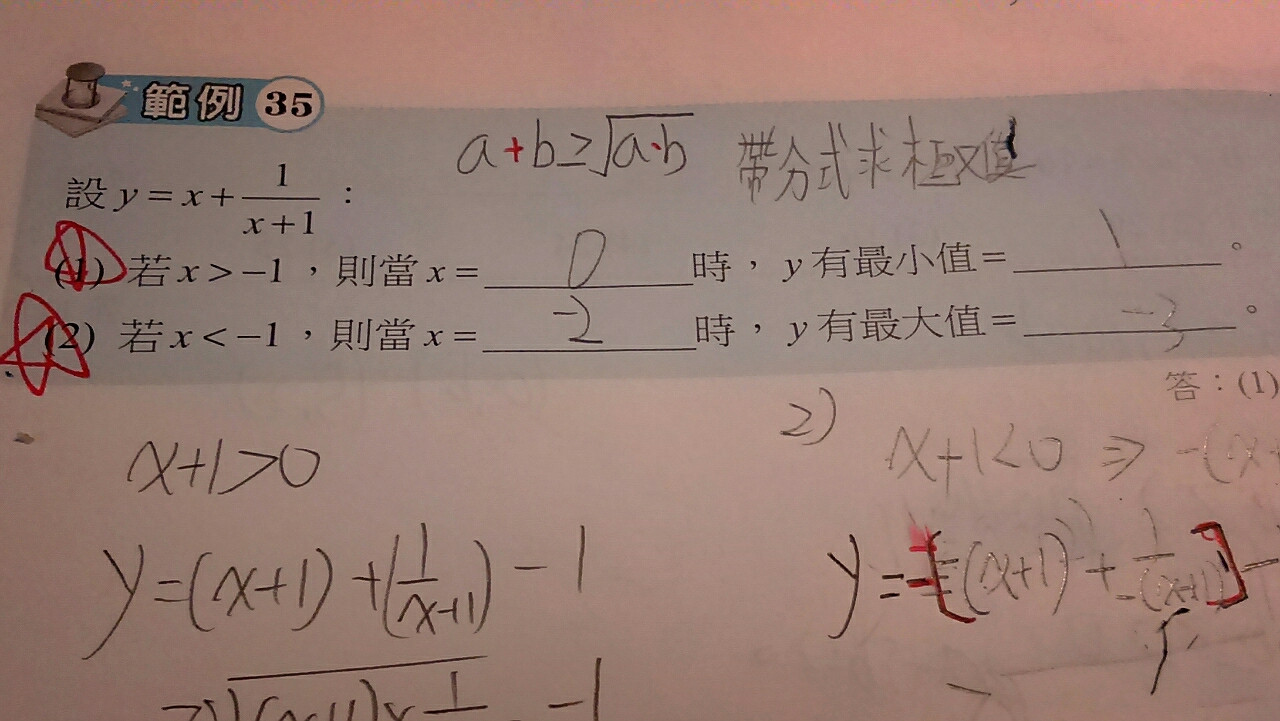 範例 35
a+b≥√a·b 帶分式求極值
設 y = x + 1/(x+1) :
(1) 若 x > −1,則當 x = 0 時,y 有最小值 = 1 。
(2) 若 x < −1,則當 x = −2 時,y 有最大值 = −3 。
答:(1)
x+1>0
y=(x+1)+(1/(x+1))-1
-1
2)
x+1<0 ⇒ -(x+